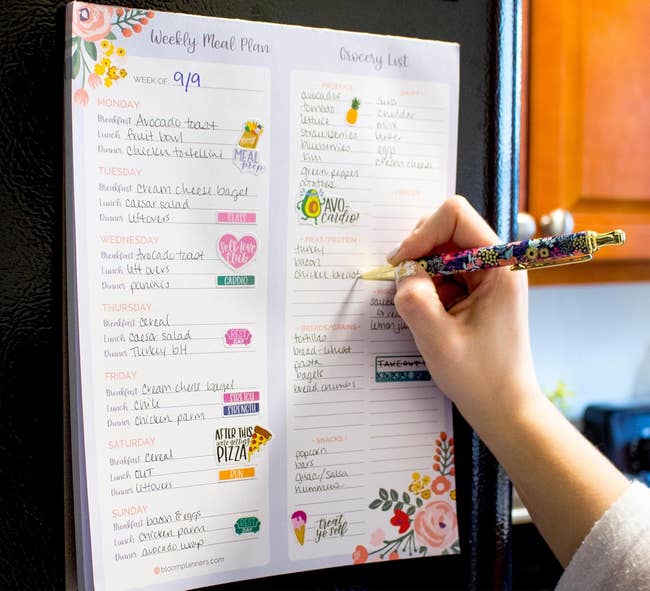 Weekly Meal Plan
WEEK OF 9/9
MONDAY
Breakfast Avocado toast
Lunch fruit bowl
Dinner chicken tortellini
MEAL prep
TUESDAY
Breakfast cream cheese bagel
Lunch caesar salad
Dinner leftovers
WEDNESDAY
Breakfast Avocado toast
Lunch leftovers
Dinner paninis
Self love club
CARDIO
THURSDAY
Breakfast cereal
Lunch caesar salad
Dinner Turkey blt
REST DAY
FRIDAY
Breakfast cream cheese bagel
Lunch chile
Dinner chicken parm
STRENGTH
SATURDAY
Breakfast cereal
Lunch OUT
Dinner leftovers
AFTER THIS
we're getting
PIZZA
RUN
SUNDAY
Breakfast bacon & eggs
Lunch chicken parm
Dinner avocado wrap
REST DAY
@bloomplanners.com
Grocery List
PRODUCE
avocados
tomato
lettuce
strawberries
blueberries
kiwi
green pepper
potatoes
AVO
cardio
MEAT/PROTEIN
turkey
bacon
chicken breast
BREADS/GRAINS
tortillas
bread-wheat
pasta
bagels
bread crumbs
SNACKS
popcorn
bars
guac/salsa
hummus
treat
yo' self
DAIRY
cheddar
milk
butter
eggs
cream cheese
TAKEOUT